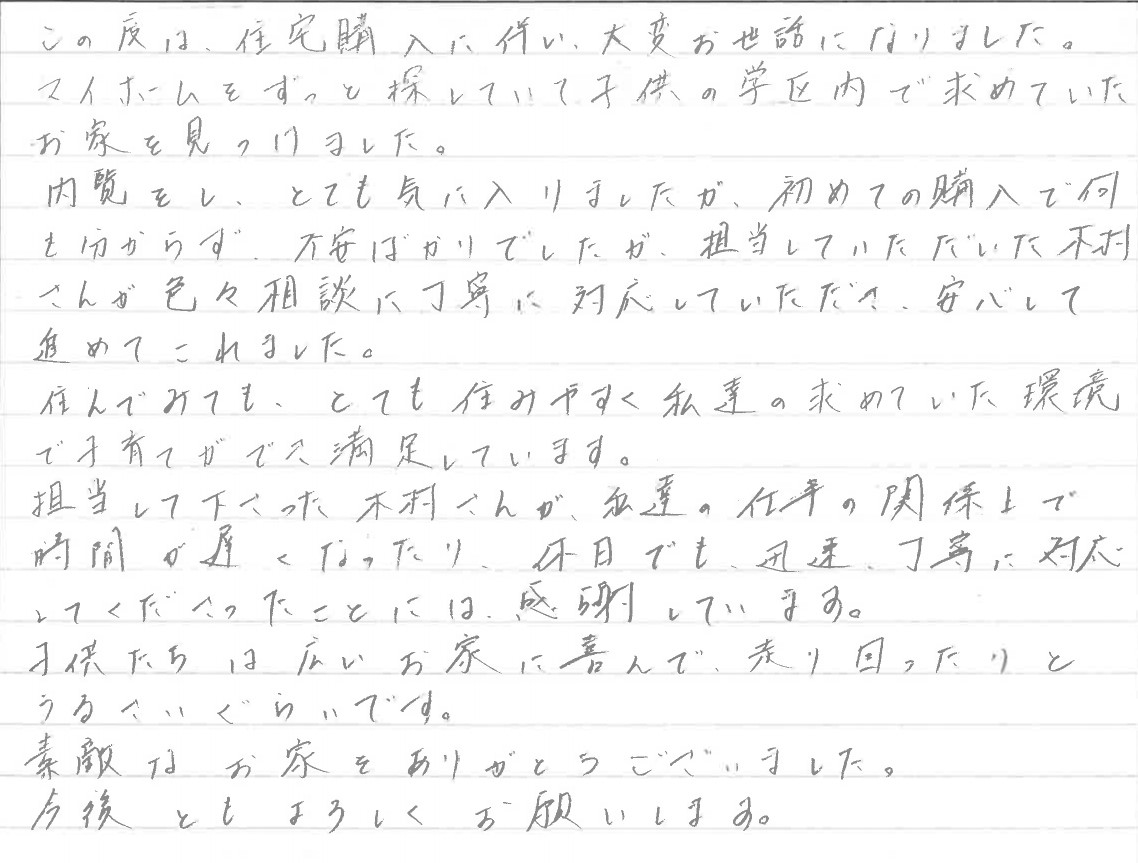 この度は、住宅購入に伴い、大変お世話になりました。
マイホームをずっと探していて子供の学区内で求めていた
お家を見つけました。
内覧をし、とても気に入りましたが、初めての購入で何
も分からず、不安ばかりでしたが、担当していただいた木村
さんが色々相談に丁寧に対応していただき、安心して
進めてこれました。
住んでみても、とても住みやすく私達の求めていた環境
で子育てができ満足しています。
担当して下さった木村さんが、私達の仕事の関係上で
時間が遅くなったり、休日でも、迅速、丁寧に対応
してくださったことには、感謝しています。
子供たちは広いお家に喜んで、走り回ったりと
うるさいぐらいです。
素敵なお家をありがとうございました。
今後ともよろしくお願いします。